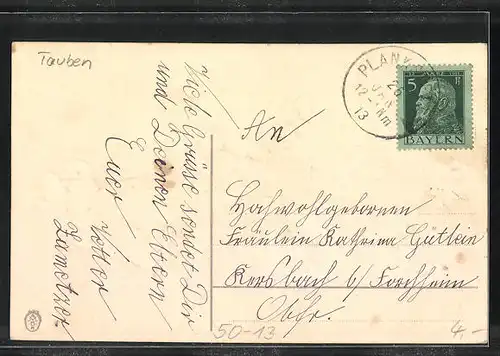 Tauben
Viele Grüsse sendet Dir
und Deinen Eltern
Euer
Vetter
Zametzer
PLANK
26
JAN
12-1 Nm
13
5 Pf
BAYERN
An
Hochwohlgeboren
Fräulein Kathrina Gütlein
Kersbach b/ Forchheim
Obfr.
50-13
4,-